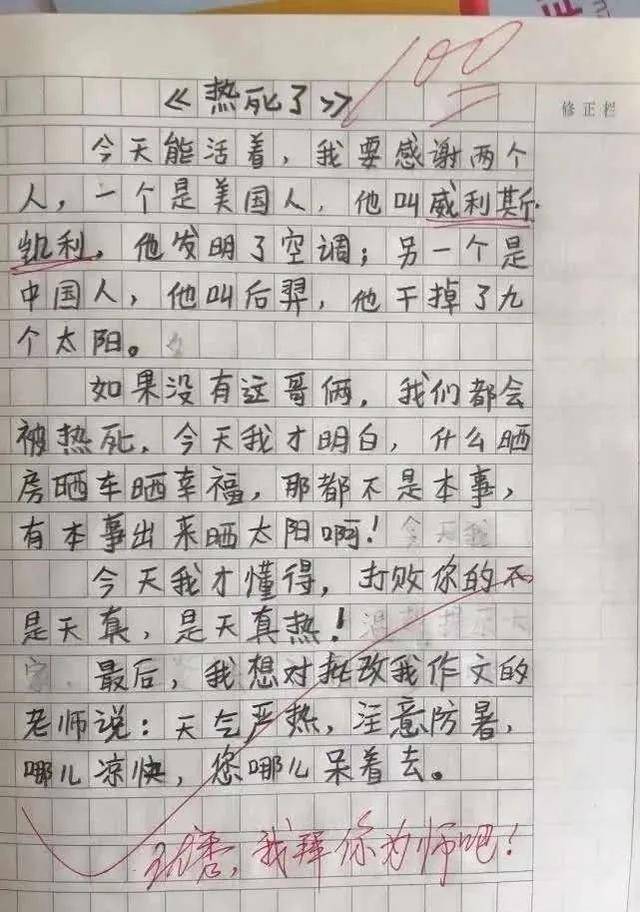 100
《热死了》
修正栏
今天能活着，我要感谢两个
人，一个是美国人，他叫威利斯
凯利，他发明了空调；另一个是
中国人，他叫后羿，他干掉了九
个太阳。
如果没有这哥俩，我们都会
被热死，今天我才明白，什么晒
房晒车晒幸福，那都不是本事，
有本事出来晒太阳啊！
今天我才懂得，打败你的不
是天真，是天真热！
最后，我想对批改我作文的
老师说：天气严热，注意防暑，
哪儿凉快，您哪儿呆着去。
优秀，我拜你为师吧！